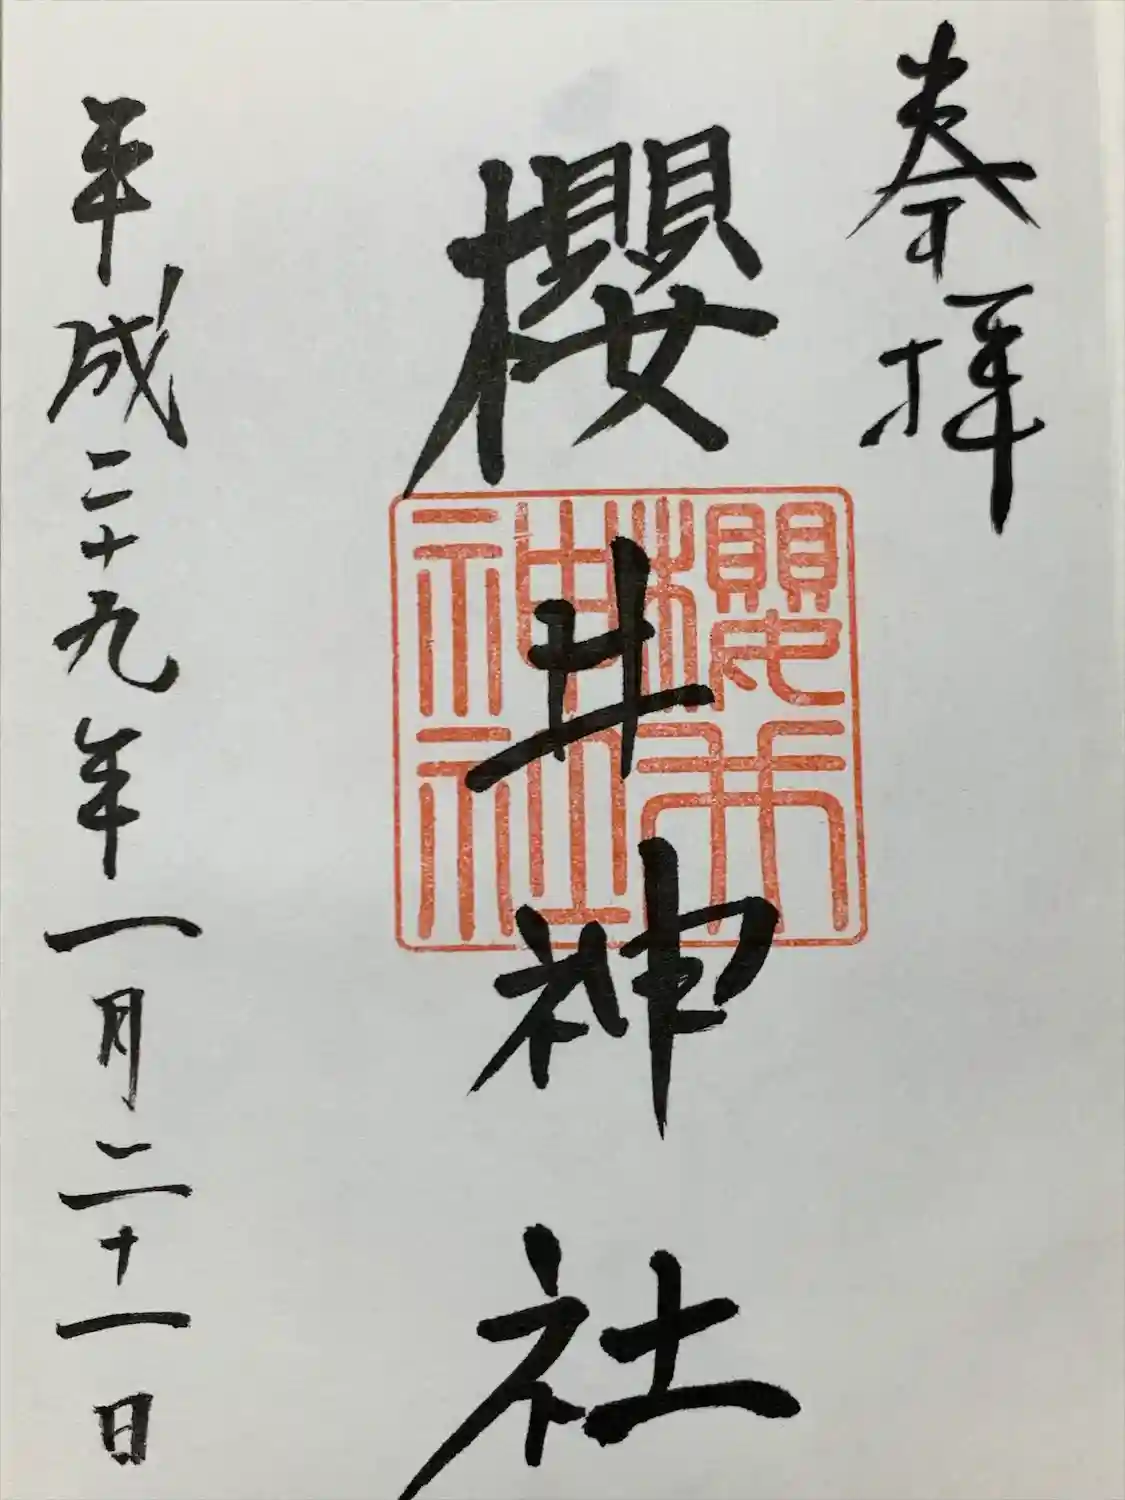 奉拝
櫻井神社
櫻井
神社
平成二十九年一月二十一日